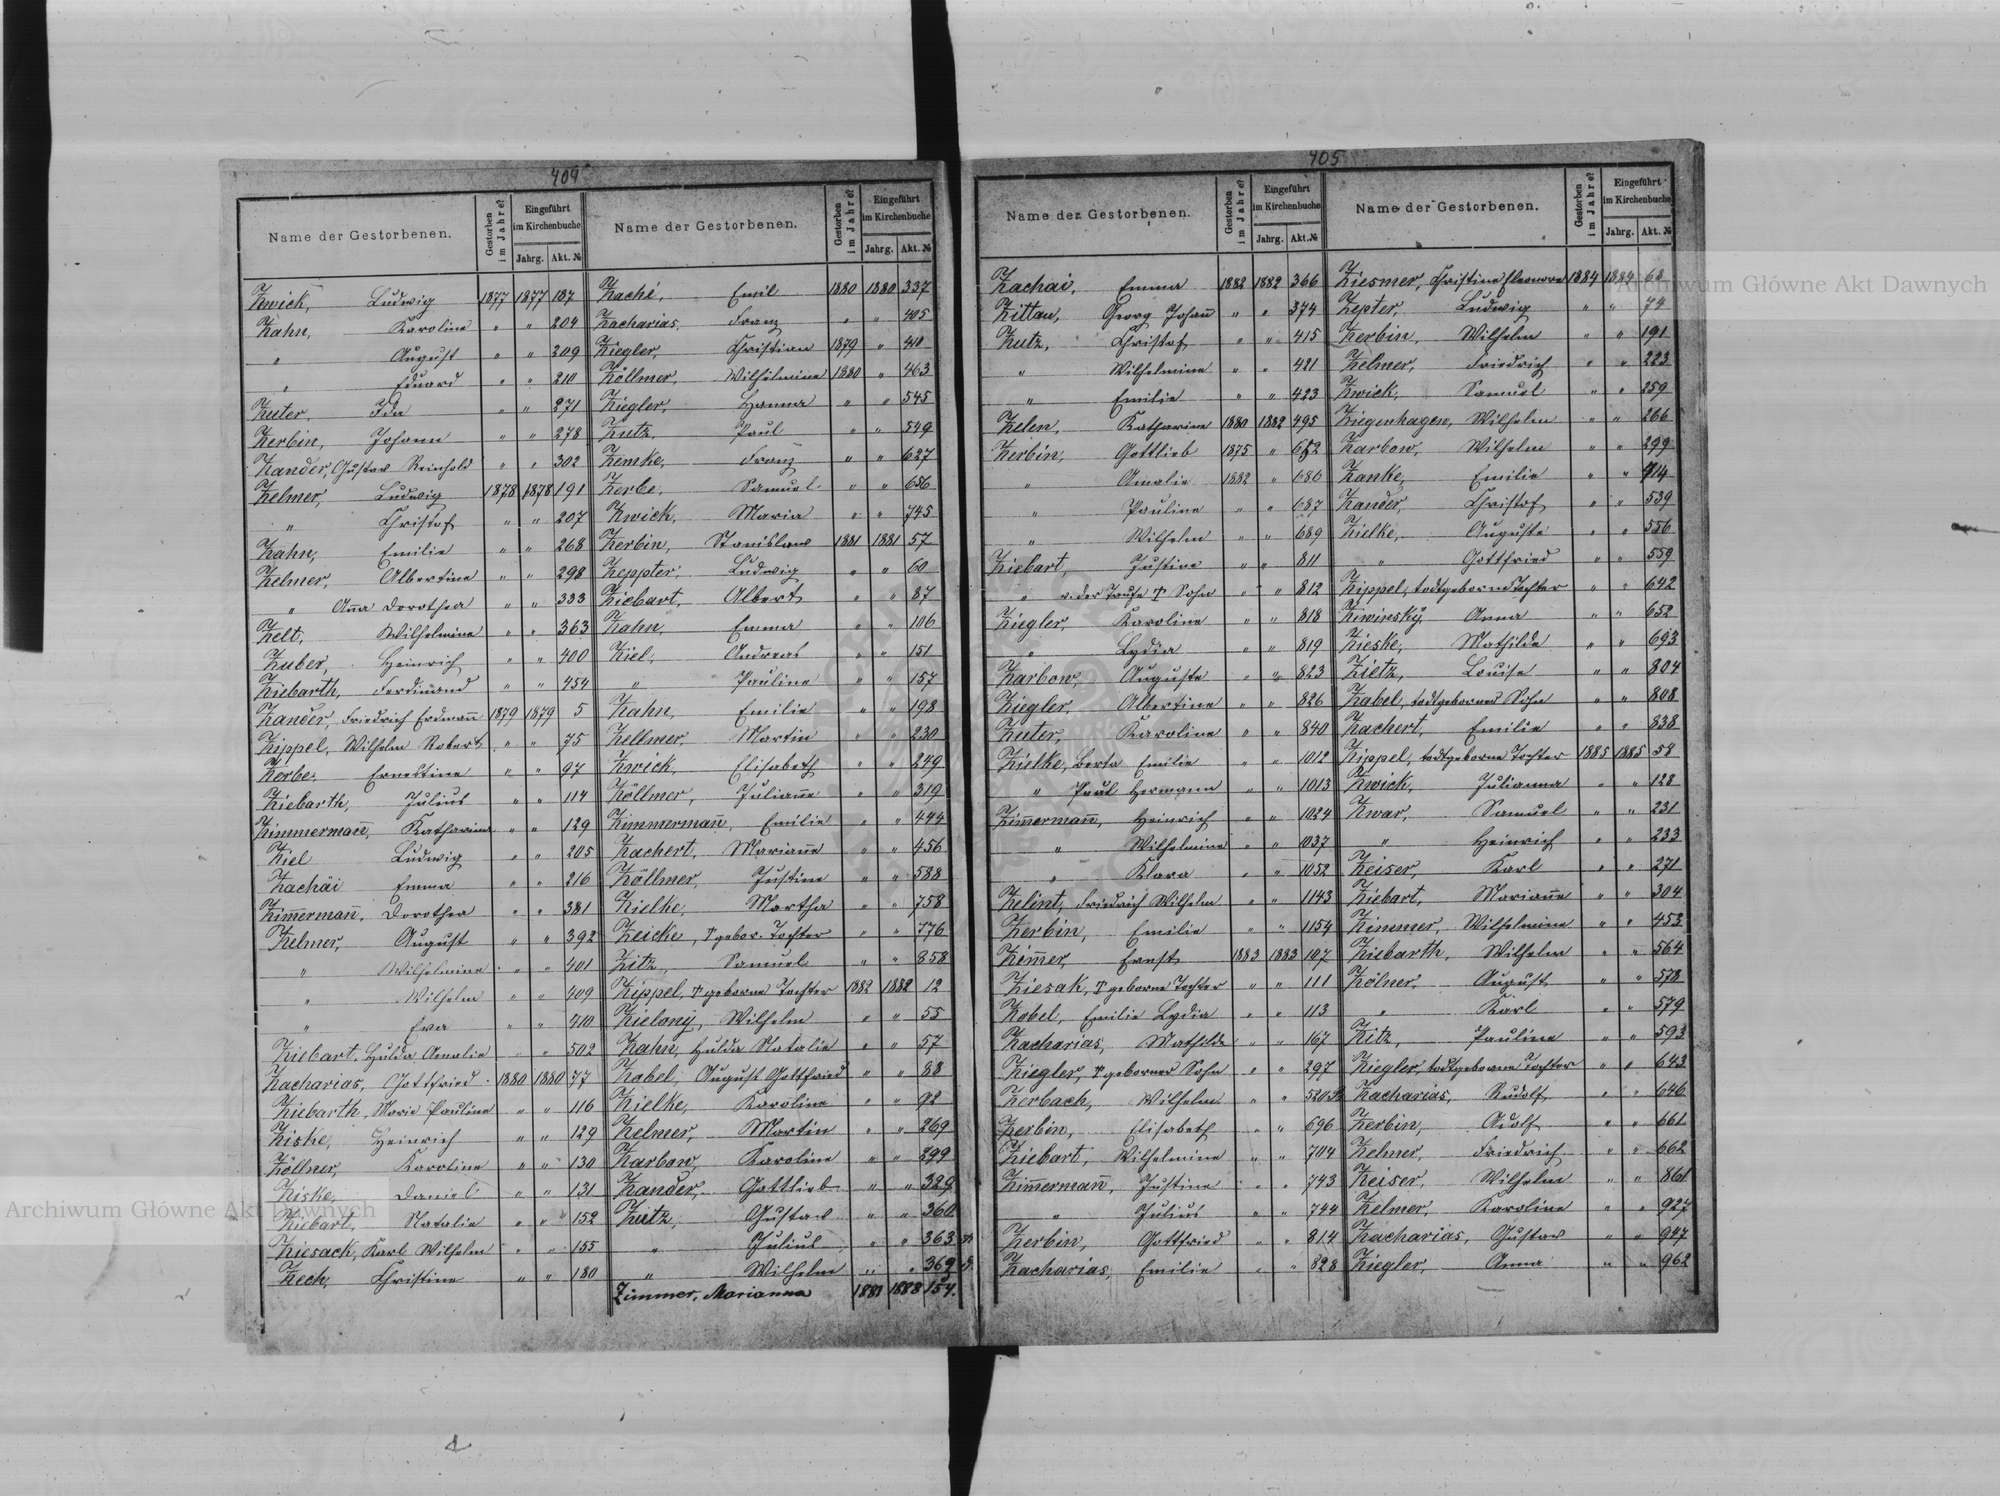 404
Name der Gestorbenen. Gestorben im Jahre? Eingeführt im Kirchenbuche Jahrg. Akt. №
Zwick, Ludwig 1877 1877 187
Zahn, Karoline " " 204
" August " " 209
" Eduard " " 210
Zuter, Ida " " 271
Zerbin, Johann " " 278
Zander, Gustav Reinhold " " 302
Zelmer, Ludwig 1878 1878 191
" Christof " " 207
Zahn, Emilie " " 268
Zelmer, Albertine " " 298
" Anna Dorothea " " 333
Zelt, Wilhelmine " " 363
Zuber, Heinrich " " 400
Ziebarth, Ferdinand " " 454
Zander, Friedrich Erdmann 1879 1879 5
Zippel, Wilhelm Robert " " 75
Zerbe, Ernestine " " 97
Ziebarth, Julius " " 114
Zimmermann, Katharina " " 129
Ziel Ludwig " " 205
Zachäi Emma " " 216
Zimmermann, Dorothea " " 381
Zelmer, August " " 392
" Wilhelmine " " 401
" Wilhelm " " 409
" Eva " " 410
Ziebart, Hulda Amalie " " 502
Zacharias, Gottfried 1880 1880 77
Ziebarth, Marie Pauline " " 116
Ziske, Heinrich " " 129
Zöllner, Karoline " " 130
Ziske, Daniel " " 131
Ziebart, Natalie " " 152
Ziesack, Karl Wilhelm " " 155
Zech, Christine " " 180
Name der Gestorbenen. Gestorben im Jahre? Eingeführt im Kirchenbuche Jahrg. Akt. №
Zaché, Emil 1880 1880 337
Zacharias, Franz " " 405
Ziegler, Christian 1879 " 410
Zöllmer, Wilhelmine 1880 " 463
Ziegler, Hanna " " 545
Zutz, Paul " " 549
Zemke, Franz " " 627
Zerbe, Samuel " " 656
Zwick, Maria " " 745
Zerbin, Stanislaw 1881 1881 57
Zeppter, Ludwig " " 60
Ziebart, Albert " " 87
Zahn, Emma " " 106
Ziel, Andreas " " 151
" Pauline " " 157
Zahn, Emilie " " 198
Zellmer, Martin " " 230
Zwick, Elisabeth " " 249
Zöllmer, Julianne " " 319
Zimmermann, Emilie " " 444
Zachert, Marianne " " 456
Zöllmer, Justine " " 588
Zielke, Martha " " 758
Zeicke, † gebor. Tochter " " 776
Zitz, Samuel " " 858
Zippel, † geborne Tochter 1882 1882 12
Zielony, Wilhelm " " 55
Zahn, Hulda Natalie " " 57
Zobel, August Gottfried " " 88
Zielke, Karoline " " 92
Zelmer, Martin " " 269
Zarbow, Karoline " " 299
Zander, Gottlieb " " 329
Zutz, Gustav " " 360
" Julius " " 363
" Wilhelm " " 369
Zimmer, Marianna 1881 1888 154.
405
Name der Gestorbenen. Gestorben im Jahre? Eingeführt im Kirchenbuche Jahrg. Akt. №
Zachai, Emma 1882 1882 366
Zittau, Georg Johann " " 374
Zutz, Christof " " 415
" Wilhelmine " " 421
" Emilie " " 423
Zelen, Katharine 1880 1882 495
Zerbin, Gottlieb 1875 " 652
" Amalie 1882 " 686
" Pauline " " 687
" Wilhelm " " 689
Ziebart, Justine " " 811
" v. der Taufe † Sohn " " 812
Ziegler, Karoline " " 818
" Lydia " " 819
Zarbow, Auguste " " 823
Ziegler, Albertine " " 826
Zuter, Karoline " " 840
Zielke, Berta Emilie " " 1012
" Paul Hermann " " 1013
Zimmermann, Heinrich " " 1024
" Wilhelmine " " 1037
" Klara " " 1052
Zelint, Friedrich Wilhelm " " 1143
Zerbin, Emilie " " 1154
Zimmer, Ernst 1883 1883 107
Ziesak, † geborne Tochter " " 111
Zobel, Emilie Lydia " " 113
Zacharias, Mathilde " " 167
Ziegler, † geborner Sohn " " 297
Zerbach, Wilhelm " " 520
Zerbin, Elisabeth " " 696
Ziebart, Wilhelmine " " 704
Zimmermann, Justine " " 743
" Julius " " 744
Zerbin, Gottfried " " 814
Zacharias, Emilie " " 828
Name der Gestorbenen. Gestorben im Jahre? Eingeführt im Kirchenbuche Jahrg. Akt. №
Ziesmer, Christine Eleonore 1884 1884 68
Zepter, Ludwig " " 74
Zerbin, Wilhelm " " 191
Zelmer, Friedrich " " 223
Zwick, Samuel " " 259
Ziegenhagen, Wilhelm " " 266
Zarbow, Wilhelm " " 299
Zanke, Emilie " "
Zander, Christof " " 539
Zielke, Auguste " " 556
" Gottfried " " 559
Zippel, todtgeborne Tochter " " 642
Ziwinsky, Anna " " 652
Zieske, Mathilde " " 693
Zietz, Louise " " 804
Zabel, todtgeborner Sohn " " 808
Zachert, Emilie " " 838
Zippel, todtgeborne Tochter 1885 1885 58
Zwick, Julianna " " 128
Zwar, Samuel " " 231
" Heinrich " " 233
Zeiser, Karl " " 271
Ziebart, Marianne " " 304
Zimmer, Wilhelmine " " 453
Ziebarth, Wilhelm " " 564
Zölner, August " " 578
" Karl " " 579
Zitz, Pauline " " 593
Ziegler, todtgeborne Tochter " " 643
Zacharias, Rudolf " " 646
Zerbin, Adolf " " 661
Zelmer, Friedrich " " 662
Zeiser, Wilhelm " " 861
Zelmer, Karoline " " 927
Zacharias, Gustav " " 947
Ziegler, Anna " " 962
Archiwum Główne Akt Dawnych
Archiwum Główne Akt Dawnych